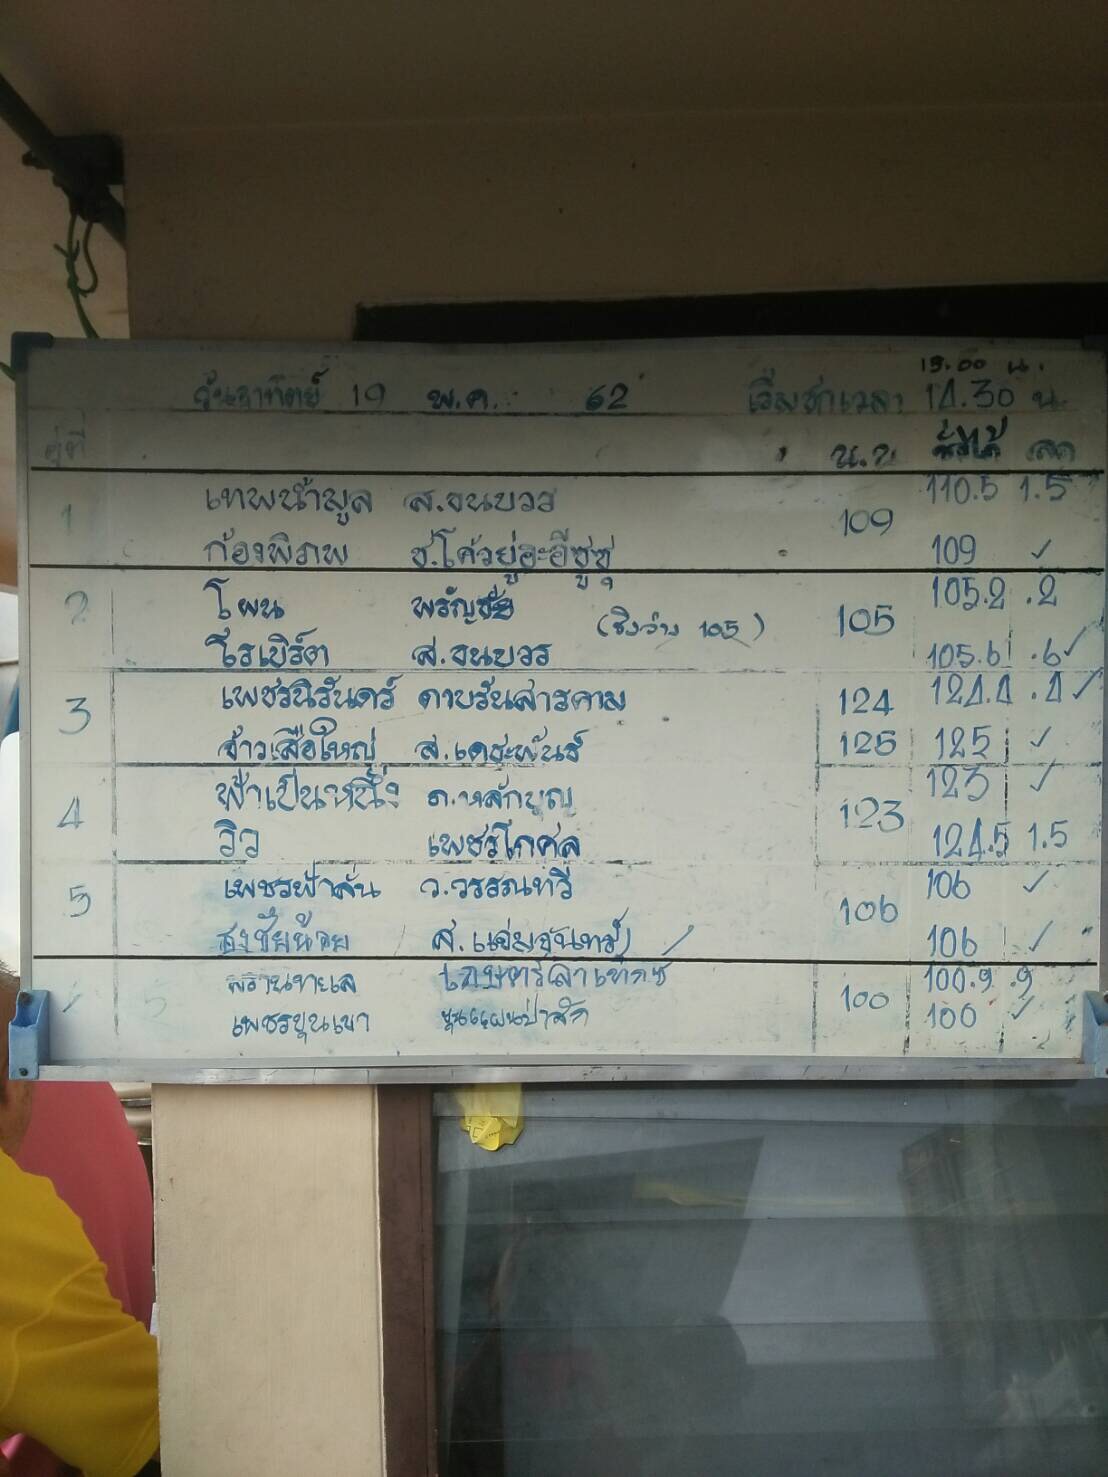 วันอาทิตย์ 19 พ.ค. 62 เริ่มชกเวลา 14.30 น. 15.00 น.
คู่ที่ น.น. ชั่งได้ ลด
1 เทพน้ำมูล ส.จนบวร 109 110.5 1.5
ก้องพิภพ ช.โค้วยู่ฮะอีซูซุ 109 ✓
2 โผน พรัญชัย 105 105.2 .2
(ชิงว่าง 105)
โรเบิร์ต ส.จนบวร 105.6 .6 ✓
3 เพชรนิรันดร์ ดาบรันสารคาม 124 124.4 .4 ✓
จ้าวเสือใหญ่ ส.เดชะพันธ์ 125 125 ✓
4 ฟ้าเป็นหนึ่ง ภ.หลักบุญ 123 123 ✓
วิว เพชรโกศล 124.5 1.5
5 เพชรฟ้าลั่น ว.วรรณทวี 106 106 ✓
ธงชัยน้อย ส.แจ่มจันทร์ 106 ✓
พรานทะเล 100 100.9 .9
เพชรขุนเขา ขุนแผนป่าสัก 100 ✓